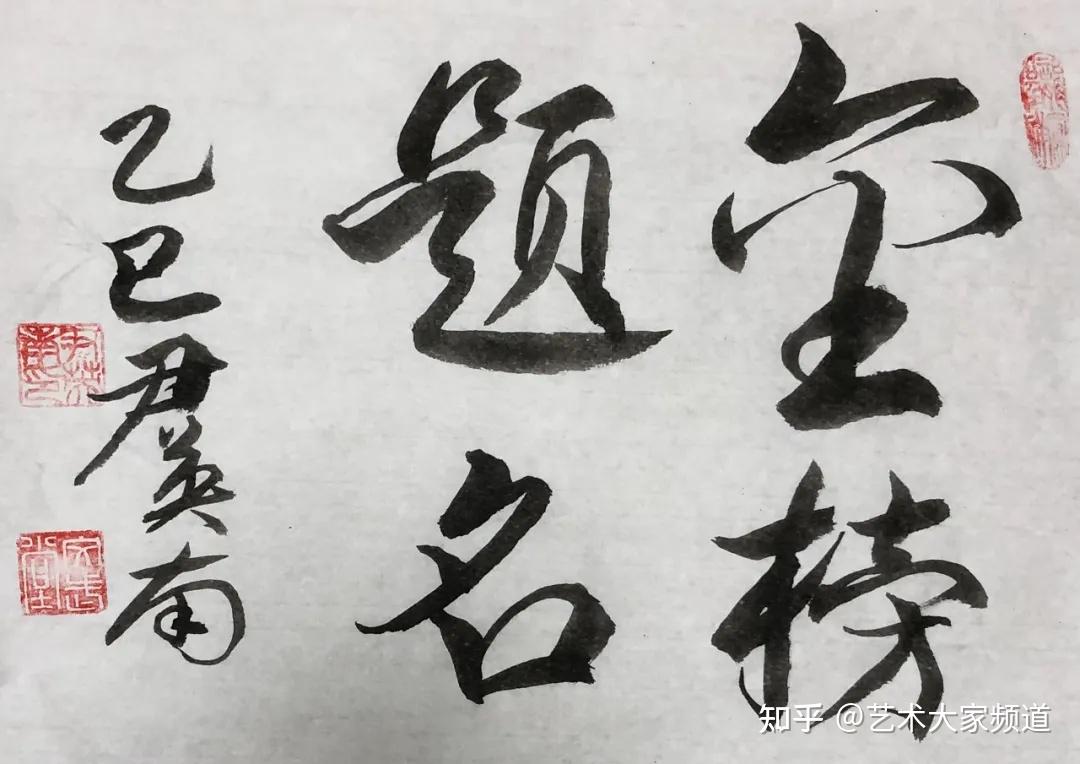 金榜
题名
乙巳尹英南
知乎 @艺术大家频道